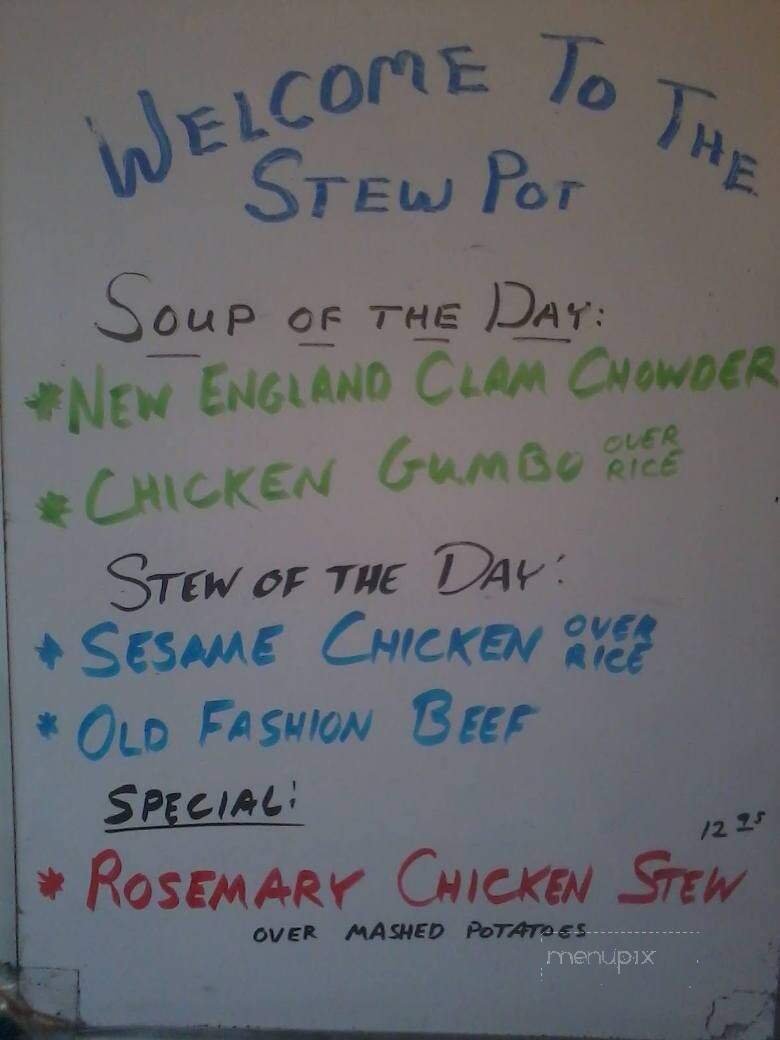 WELCOME TO THE
STEW POT
SOUP OF THE DAY:
*NEW ENGLAND CLAM CHOWDER
*CHICKEN GUMBO OVER RICE
STEW OF THE DAY:
*SESAME CHICKEN OVER RICE
*OLD FASHION BEEF
SPECIAL:
12 95
*ROSEMARY CHICKEN STEW
OVER MASHED POTATOES
menupix